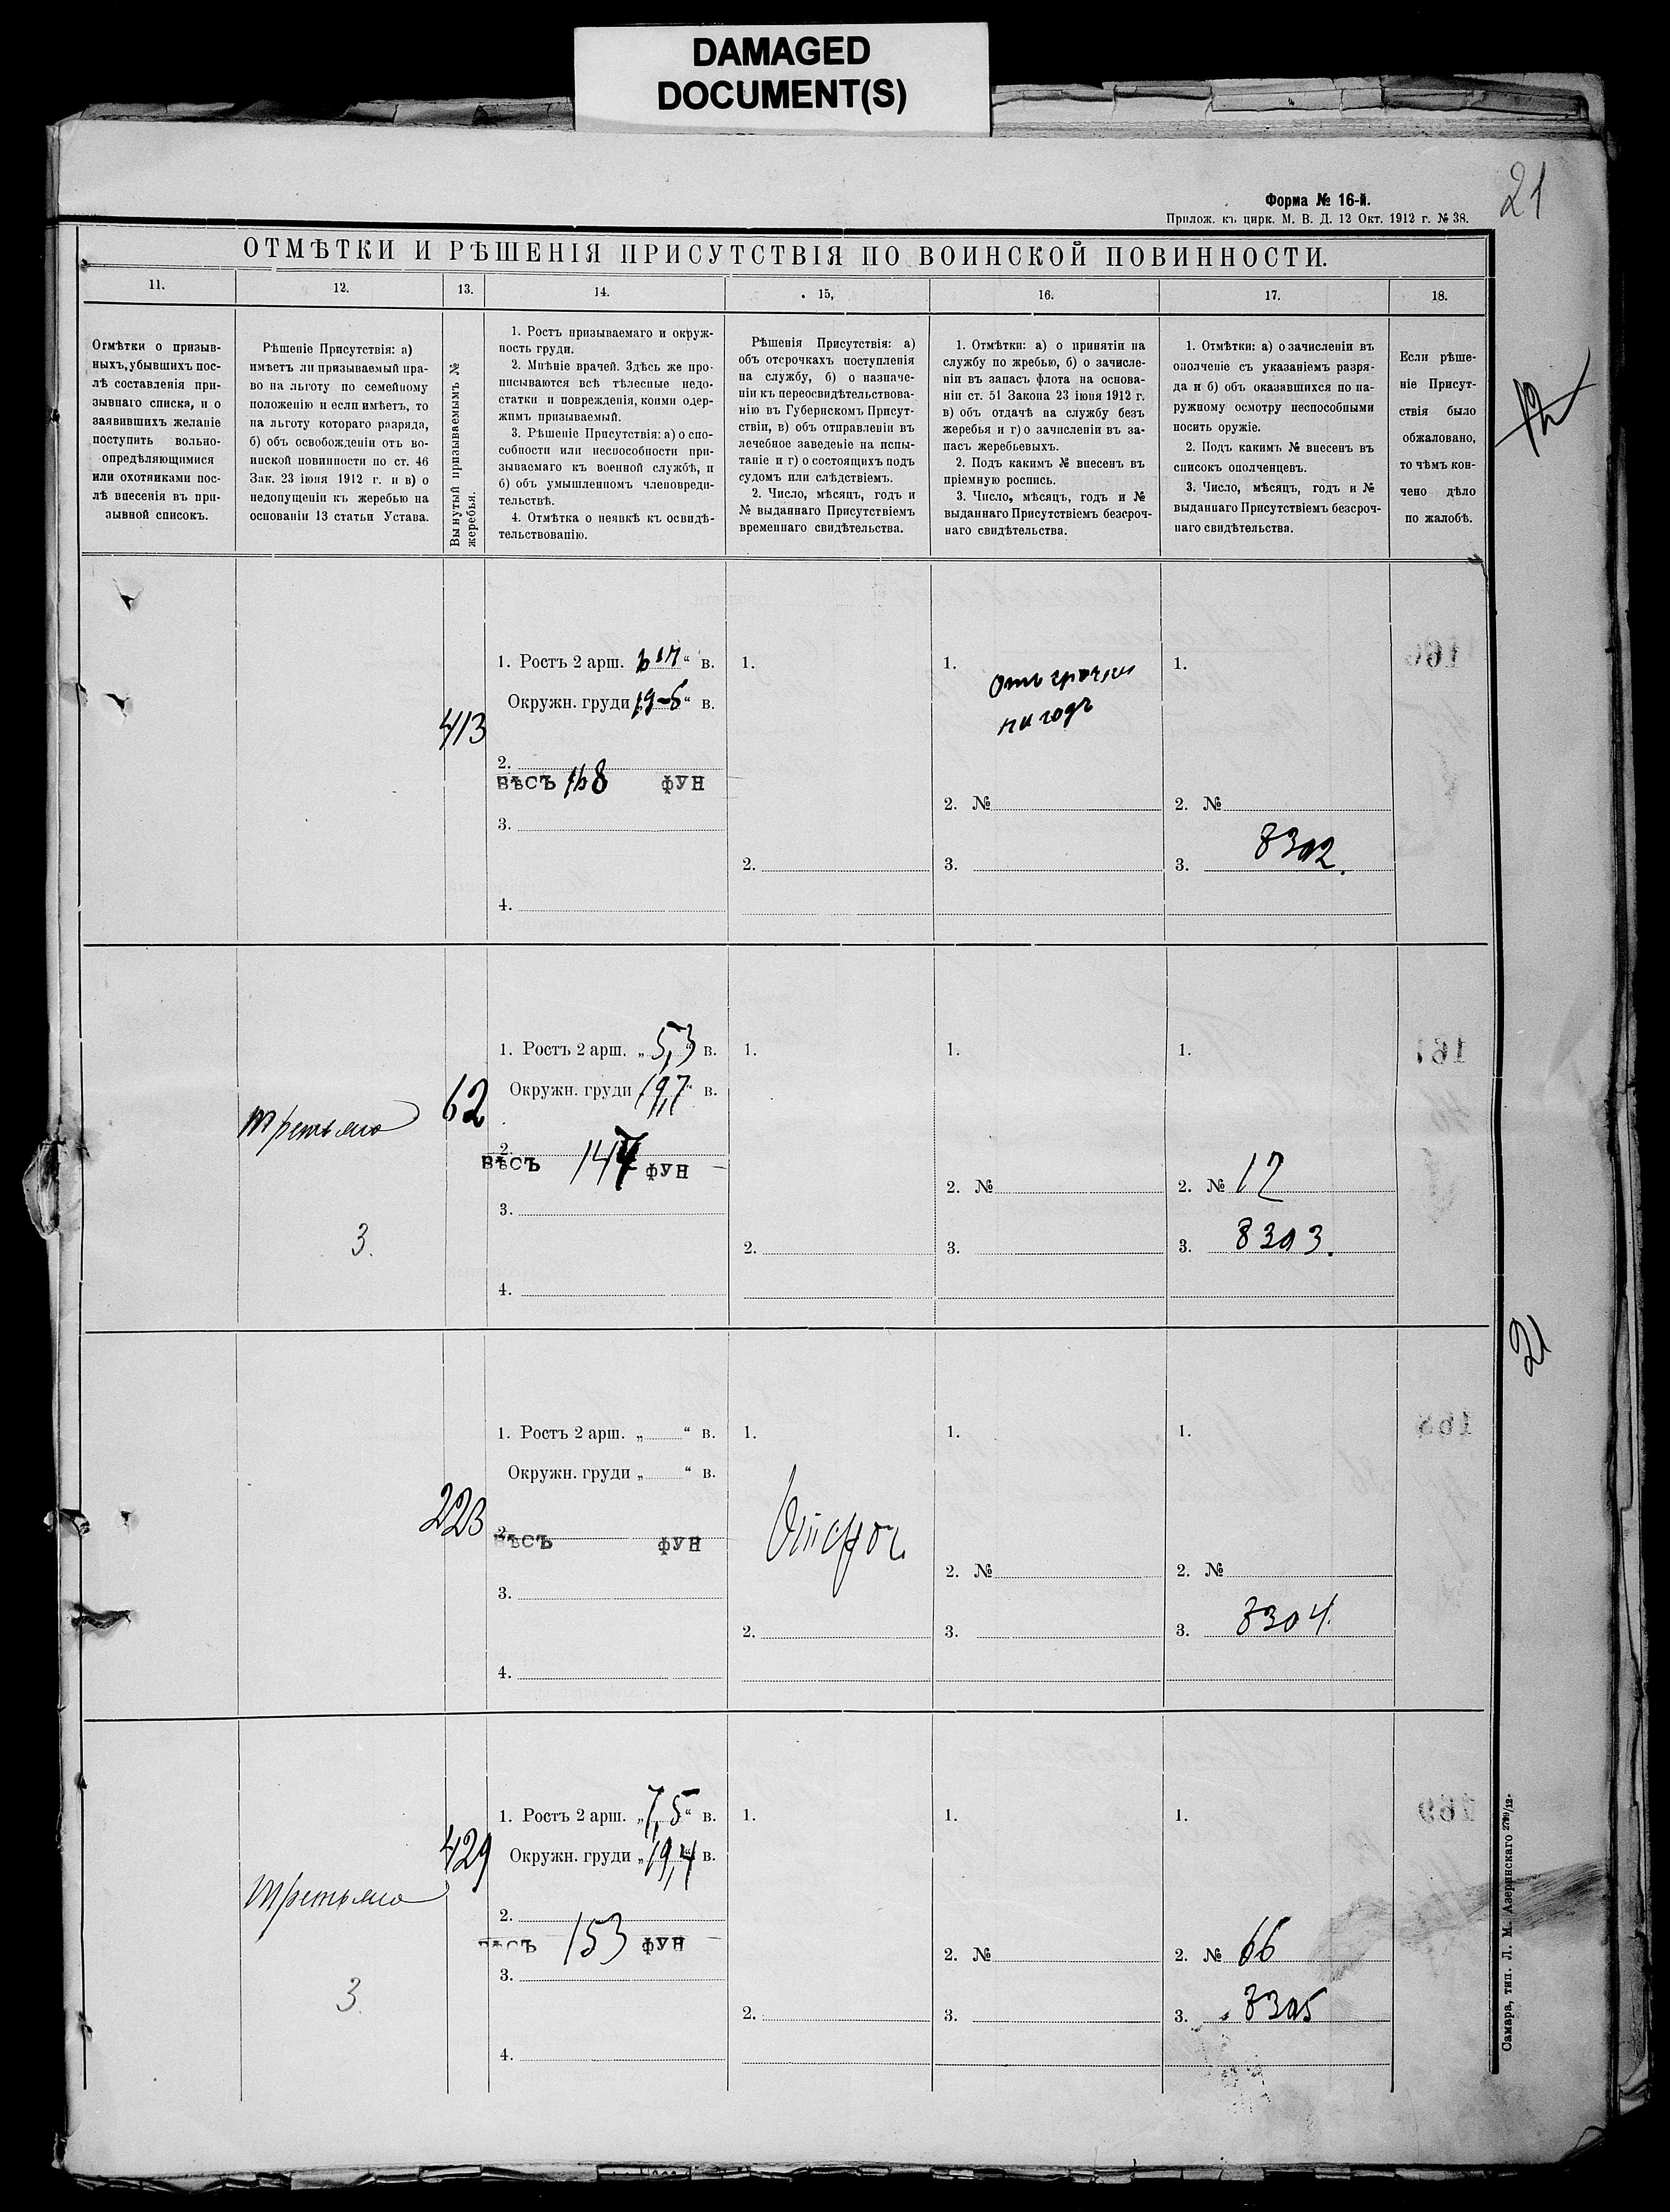 DAMAGED
DOCUMENT(S)
21
Форма № 16-й.
Прилож. къ цирк. М. В. Д. 12 Окт. 1912 г. № 38.
ОТМѢТКИ И РѢШЕНІЯ ПРИСУТСТВІЯ ПО ВОИНСКОЙ ПОВИННОСТИ.
11. 12. 13. 14. 15. 16. 17. 18.
Отмѣтки о призыв-
ныхъ, убывшихъ пос-
лѣ составленія при-
зывнаго списка, и о
заявившихъ желаніе
поступить вольно-
опредѣляющимися
или охотниками пос-
лѣ внесенія въ при-
зывной списокъ.
Рѣшеніе Присутствія: а)
имѣетъ ли призываемый пра-
во на льготу по семейному
положенію и если имѣетъ, то
на льготу котораго разряда,
б) объ освобожденіи отъ во-
инской повинности по ст. 46
Зак. 23 іюня 1912 г. и в) о
недопущеніи къ жеребью на
основаніи 13 статьи Устава.
Вынутый призываемымъ №
жеребья.
1. Ростъ призываемаго и окруж-
ность груди.
2. Мнѣніе врачей. Здѣсь же про-
писываются всѣ тѣлесные недо-
статки и поврежденія, коими одер-
жимъ призываемый.
3. Рѣшеніе Присутствія: а) о спо-
собности или неспособности при-
зываемаго къ военной службѣ, и
б) объ умышленномъ членовреди-
тельствѣ.
4. Отмѣтка о неявкѣ къ освидѣ-
тельствованію.
Рѣшенія Присутствія: а)
объ отсрочкахъ поступленія
на службу, б) о назначе-
ніи къ переосвидѣтельствова-
нію въ Губернскомъ Присут-
ствіи, в) объ отправленіи въ
лечебное заведеніе на испы-
таніе и г) о состоящихъ подъ
судомъ или слѣдствіемъ.
2. Число, мѣсяцъ, годъ и
№ выданнаго Присутствіемъ
временнаго свидѣтельства.
1. Отмѣтки: а) о принятіи на
службу по жребью, б) о зачисле-
ніи въ запасъ флота на основа-
ніи ст. 51 Закона 23 іюня 1912 г.
в) объ отдачѣ на службу безъ
жеребья и г) о зачисленіи въ за-
пасъ жеребьевыхъ.
2. Подъ какимъ № внесенъ въ
пріемную роспись.
3. Число, мѣсяцъ, годъ и №
выданнаго Присутствіемъ безсроч-
наго свидѣтельства.
1. Отмѣтки: а) о зачисленіи въ
ополченіе съ указаніемъ разря-
да и б) объ оказавшихся по на-
ружному осмотру неспособными
носить оружіе.
2. Подъ какимъ № внесенъ въ
списокъ ополченцевъ.
3. Число, мѣсяцъ, годъ и №
выданнаго Присутствіемъ безсроч-
наго свидѣтельства.
Если рѣше-
ніе Присут-
ствія было
обжаловано,
то чѣмъ кон-
чено дѣло
по жалобѣ.
12
413
1. Ростъ 2 арш. " в.
Окружн. груди 19-6 " в.
2.
ВѢСЪ 168 ФУН
3.
4.
1.
2.
1. Отсрочки
на годъ
2. №
3.
1.
2. №
3. 8302.
третьяго
3.
62
1. Ростъ 2 арш. „ 5,3 " в.
Окружн. груди 19,7 " в.
2.
ВѢСЪ 147 ФУН
3.
4.
1.
2.
1.
2. №
3.
1.
2. № 12
3. 8303.
2
223
1. Ростъ 2 арш. „ " в.
Окружн. груди „ " в.
2.
ВѢСЪ ФУН
3.
4.
1.
Отсроч.
2.
1.
2. №
3.
1.
2. №
3. 8304.
третьяго
3
429
1. Ростъ 2 арш. „ 7,5 " в.
Окружн. груди „ 19,4 " в.
2.
ВѢСЪ 153 ФУН
3.
4.
1.
2.
1.
2. №
3.
1.
2. № 66
3. 8305
Самара, тип. Л. М. Азеринскаго 2799/12.